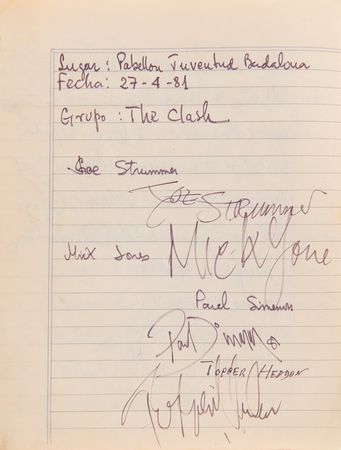 Lugar: Pabellon Juventud Badalona
Fecha: 27-4-81
Grupo: The Clash
Joe Strummer
JOE STRUMMER
Mick Jones
Mick Jone
Paul Simenon
Paul Simenon
TOPPER HEDDON
Topper